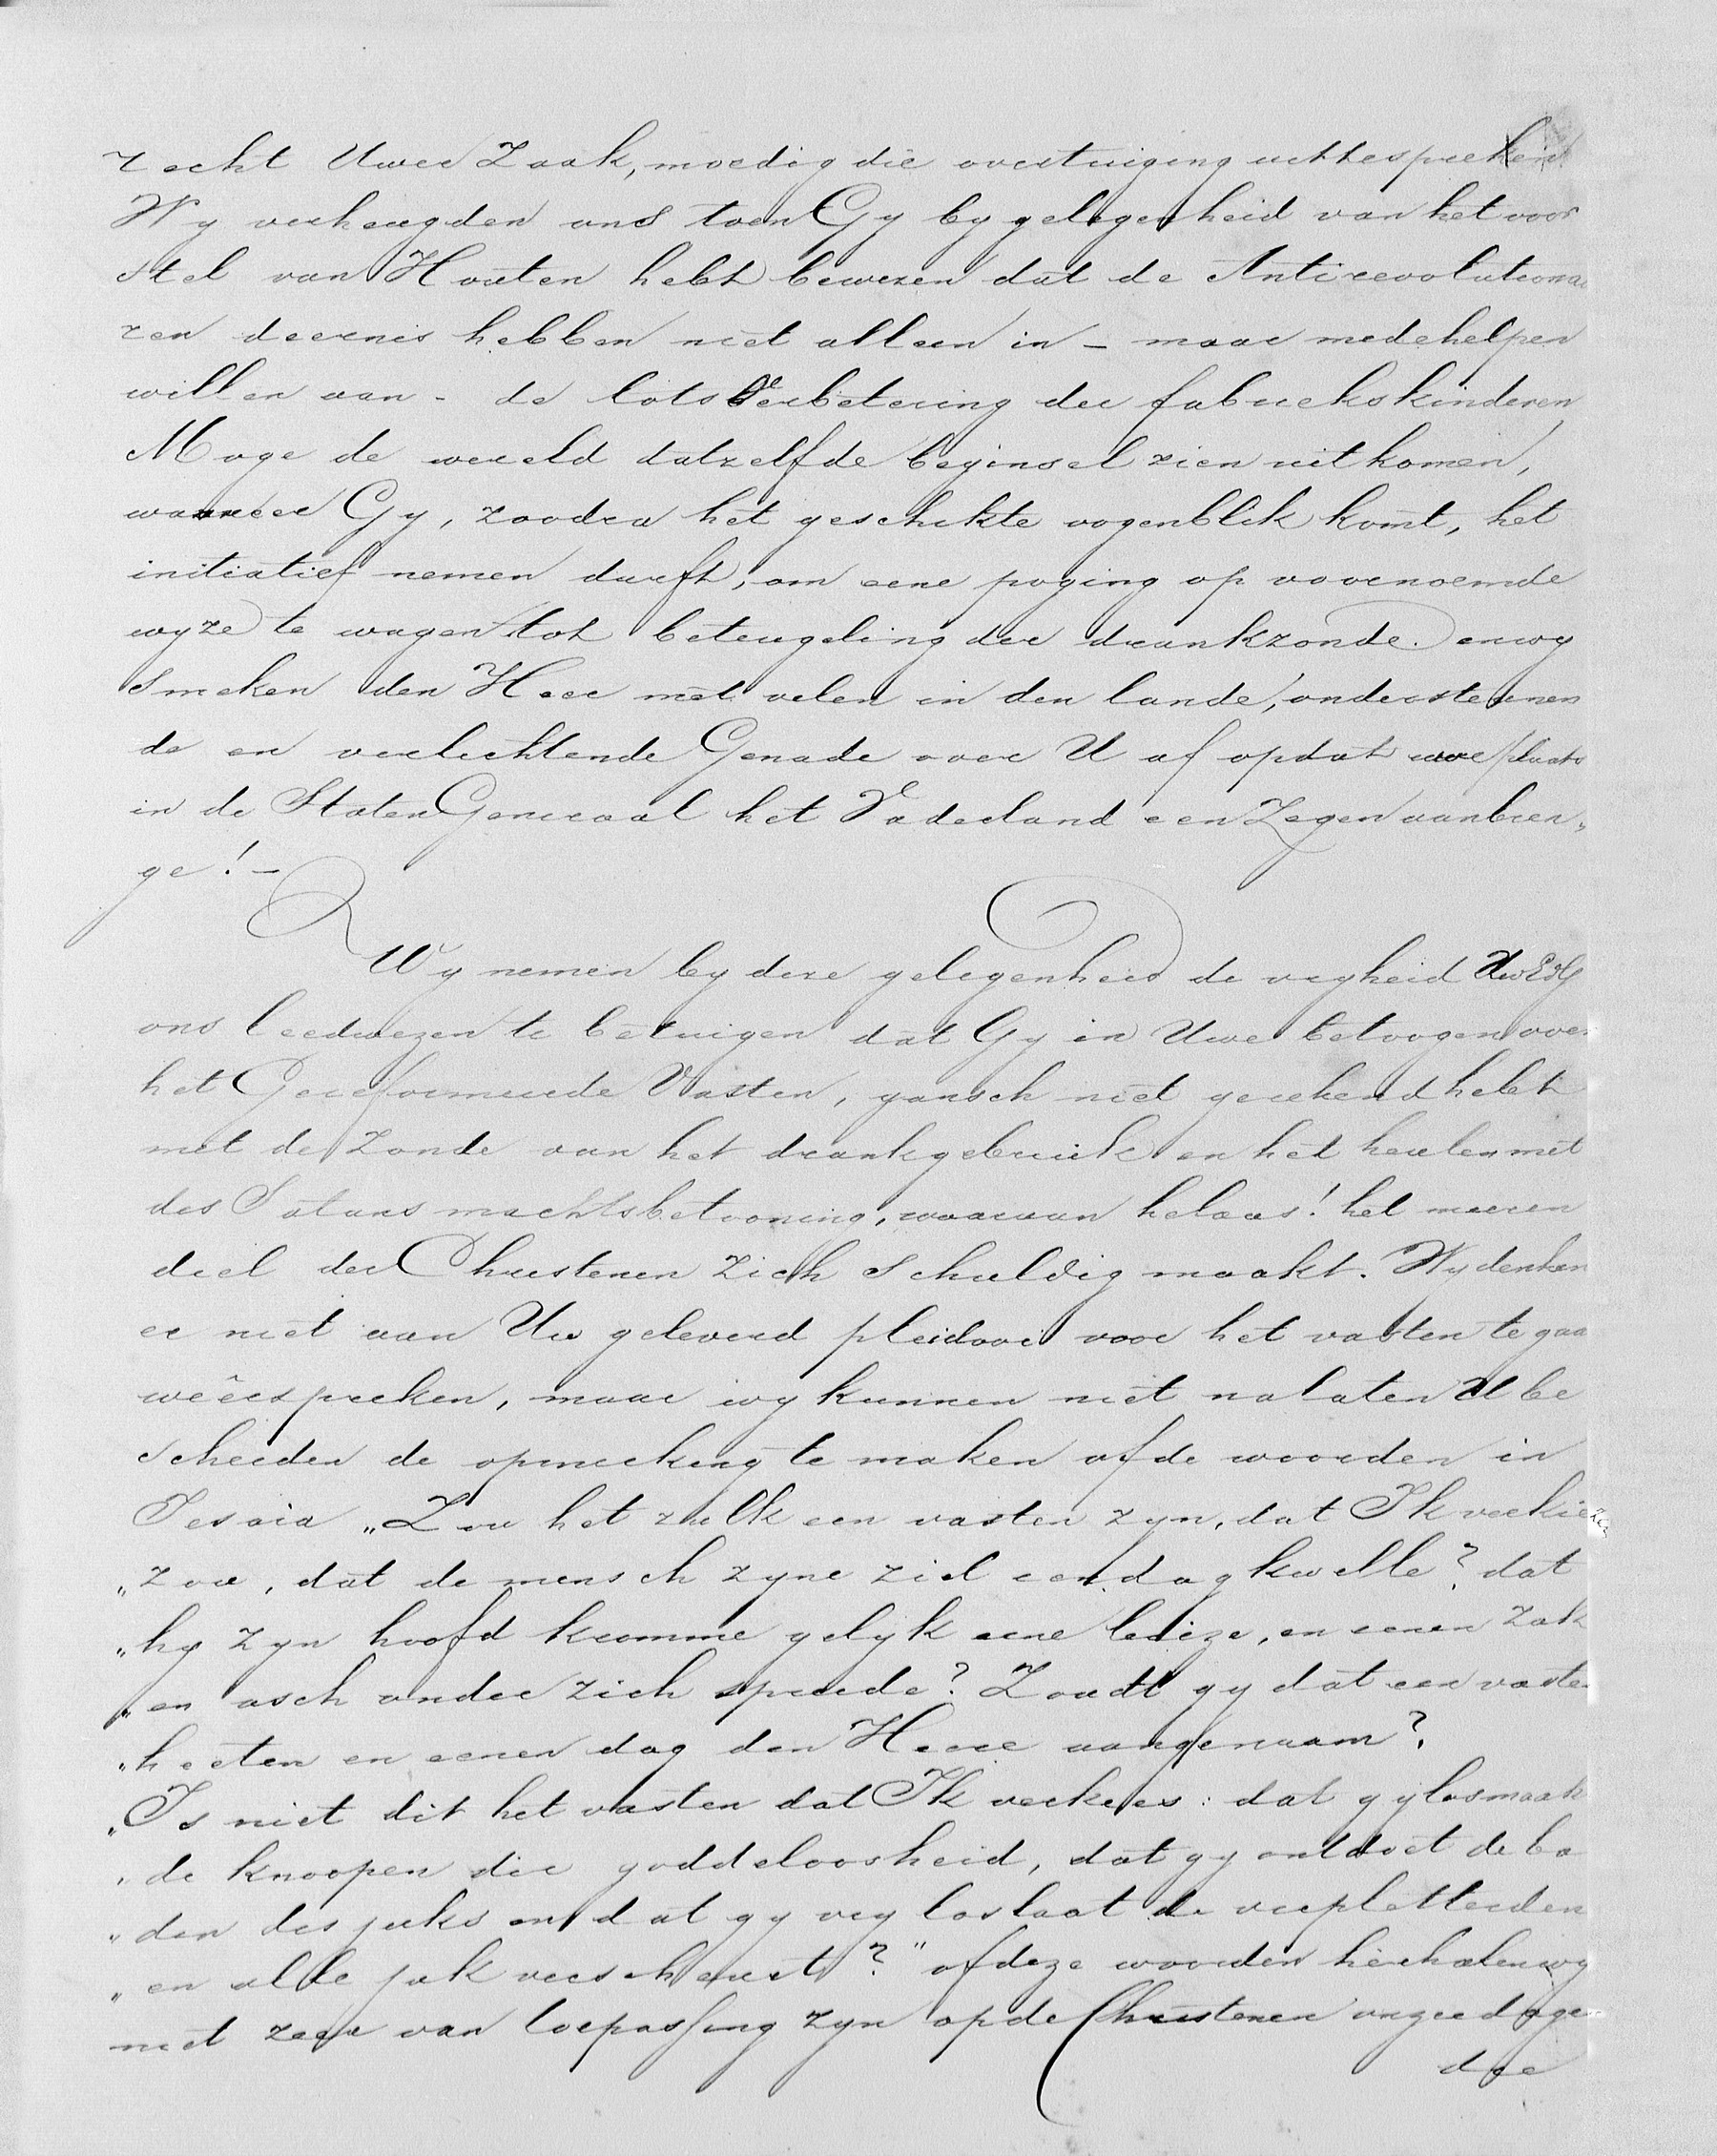 recht Uwer Zaak, moedig die overtuiging uittespreken
Wy verheugden ons toen Gy by gelegenheid van het voor
stel van Houten hebt bewezen dat de Antirevolutionai
ren deernis hebben niet alleen in – maar medehelpen
willen aan – de lotsverbetering der fabriekskinderen,
Moge de wereld datzelfde beginsel zien uitkomen,
wanneer Gy, zoodra het geschikte oogenblik komt, het
initiatief nemen durft, om eene poging op voornoemde
wyze te wagen tot beteugeling der drankzonde. en wy
smeken den Heer met velen in den lande, ondersteunen
de en verlichtende Genade over U af opdat uwe plaats
in de Staten Generaal het Vaderland een Zegen aanbren„
ge! –
Wy nemen by deze gelegenheid de vryheid UwEdG
ons leedwezen te betuigen dat Gy in Uwe betoogen over
het Gereformeerde Vasten, gansch niet gerekend hebt
met de Zonde van het drankgebruik en het heulen met
des Satans machtsbetooning, waaraan helaas! het meeren
deel der Christenen zich schuldig maakt. Wy denken
er niet aan Uw geleverd pleidooi voor het vasten te gaa
weêrspreken, maar wy kunnen niet nalaten U be
scheiden de opmerking te maken of de woorden in
Jesaia „Zou het zulk een vasten zyn, dat Ik verkiezen
„zou, dat de mensch zyne ziel een dag kwelle? dat
„hy zyn hoofd kromme gelyk eene bieze, en eenen zak
„en asch onder zich spreide? Zoudt gy dat een vasten
„heeten en eenen dag den Heere aangenaam?
„Is niet dit het vasten dat Ik verkies: dat gy losmaak
„de knoopen der goddeloosheid, dat gy ontdoet de ba
„den des juks en dat gy vry loslaat de verpletterden
„en alle juk verscheurt?" of deze woorden herhalen wy
niet zeer van toepassing zyn op de Christenen onzer dage
die